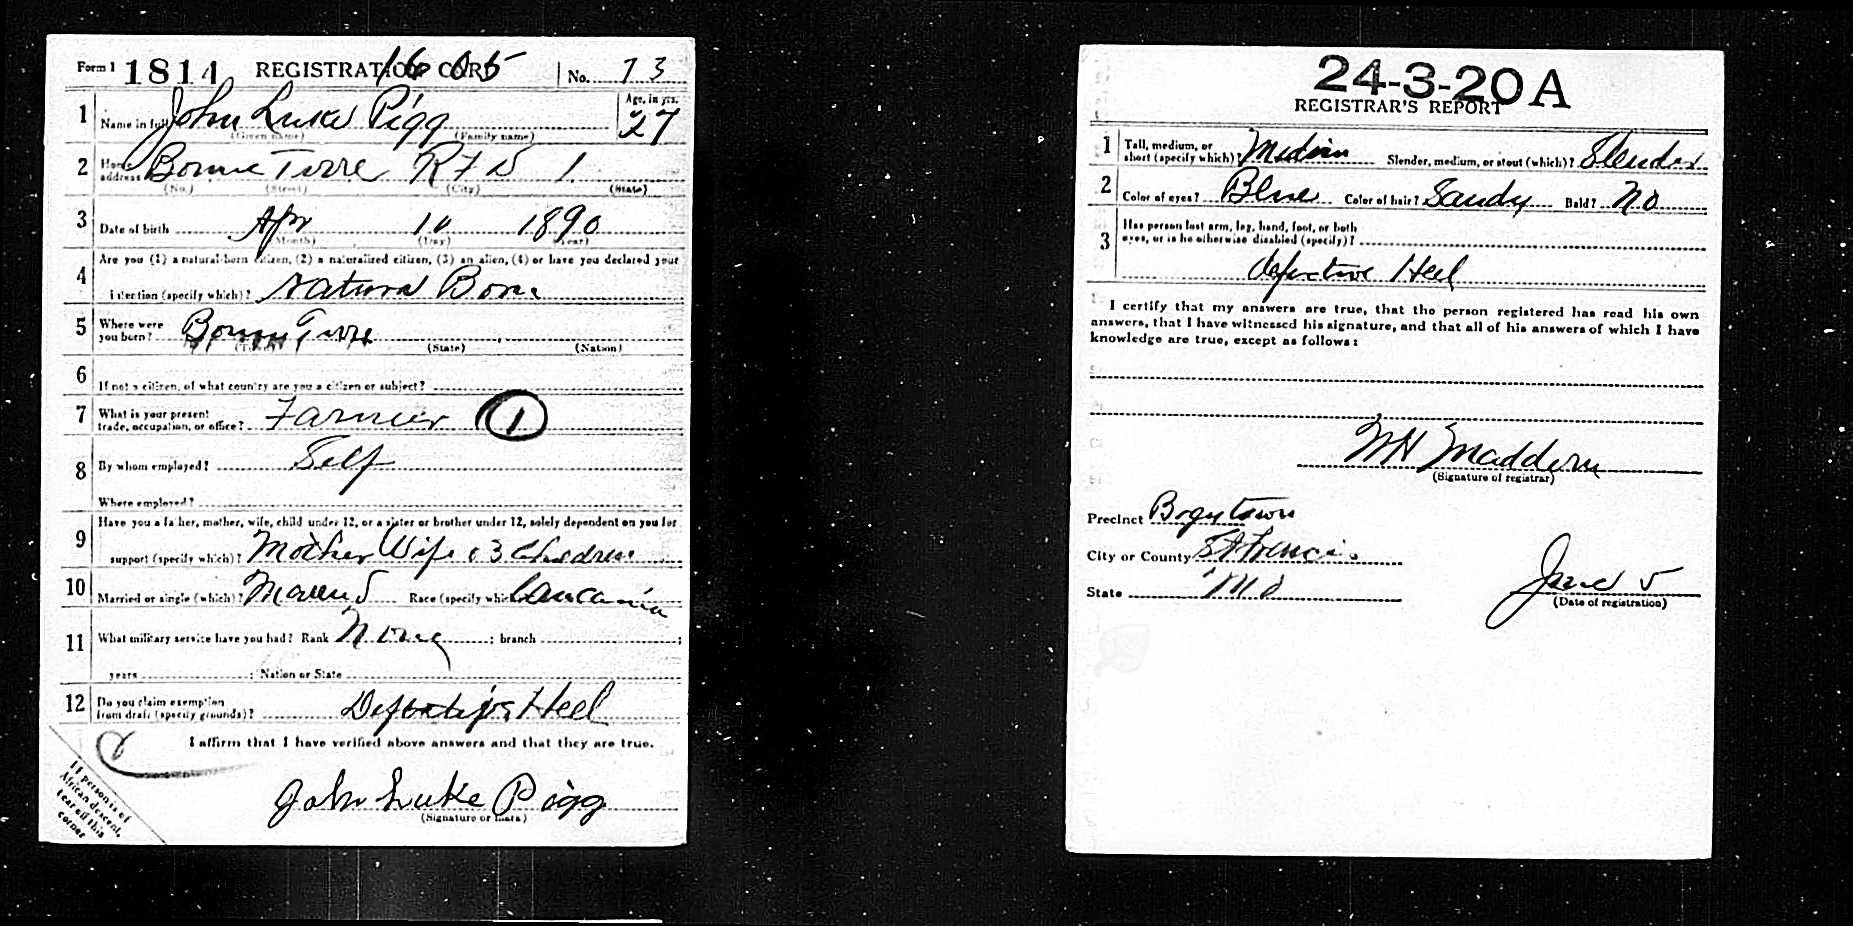 Form 1 1814 REGISTRATION CARD 1605 No. 73
1 Name in full John Luke Pigg Age, in yrs. 27
(Given name) (Family name)
2 Home address Bonne Turre R F D 1
(No.) (Street) (City) (State)
3 Date of birth Apr 10 1890
(Month) (Day) (Year)
Are you (1) a natural-born citizen, (2) a naturalized citizen, (3) an alien, (4) or have you declared your
4 intention (specify which)? Natural Born
5 Where were you born? Bonne Turre
(Town) (State) (Nation)
6 If not a citizen, of what country are you a citizen or subject?
7 What is your present
trade, occupation, or office? Farmer 1
8 By whom employed? Self
Where employed?
Have you a father, mother, wife, child under 12, or a sister or brother under 12, solely dependent on you for
9 support (specify which)? Mother Wife & 3 Children
10 Married or single (which)? Race (specify which)? Caucasian
11 What military service have you had? Rank None ; branch ;
years ; Nation or State
12 Do you claim exemption
from draft (specify grounds)? Heel
I affirm that I have verified above answers and that they are true.
John Luke Pigg
(Signature or mark)
If person is of
African descent,
tear off this
corner
24-3-20 A
REGISTRAR'S REPORT
1 Tall, medium, or
short (specify which)? Medium Slender, medium, or stout (which)? Slender
2 Color of eyes? Blue Color of hair? Sandy Bald? No
3 Has person lost arm, leg, hand, foot, or both
eyes, or is he otherwise disabled (specify)?
defective Heel
I certify that my answers are true, that the person registered has read his own
answers, that I have witnessed his signature, and that all of his answers of which I have
knowledge are true, except as follows:
W H Maddern
(Signature of registrar)
Precinct
City or County St Francis
State Mo
June 5
(Date of registration)